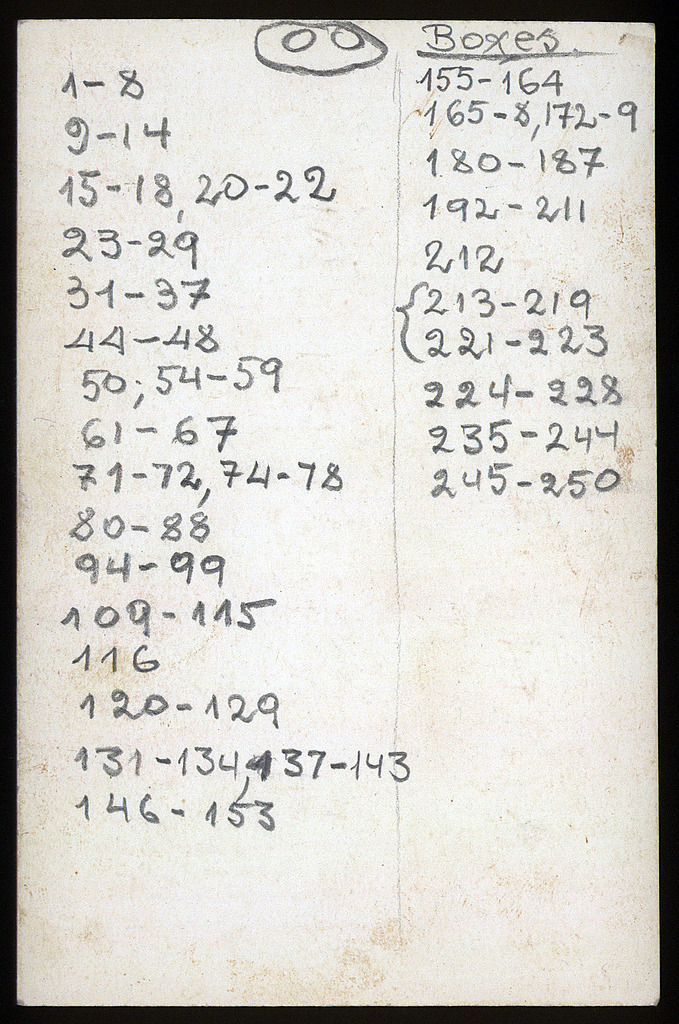 00 Boxes
1-8
9-14
15-18, 20-22
23-29
31-37
44-48
50; 54-59
61-67
71-72, 74-78
80-88
94-99
109-115
116
120-129
131-134, 137-143
146-153
155-164
165-8, 172-9
180-187
192-211
212
{213-219
221-223
224-228
235-244
245-250